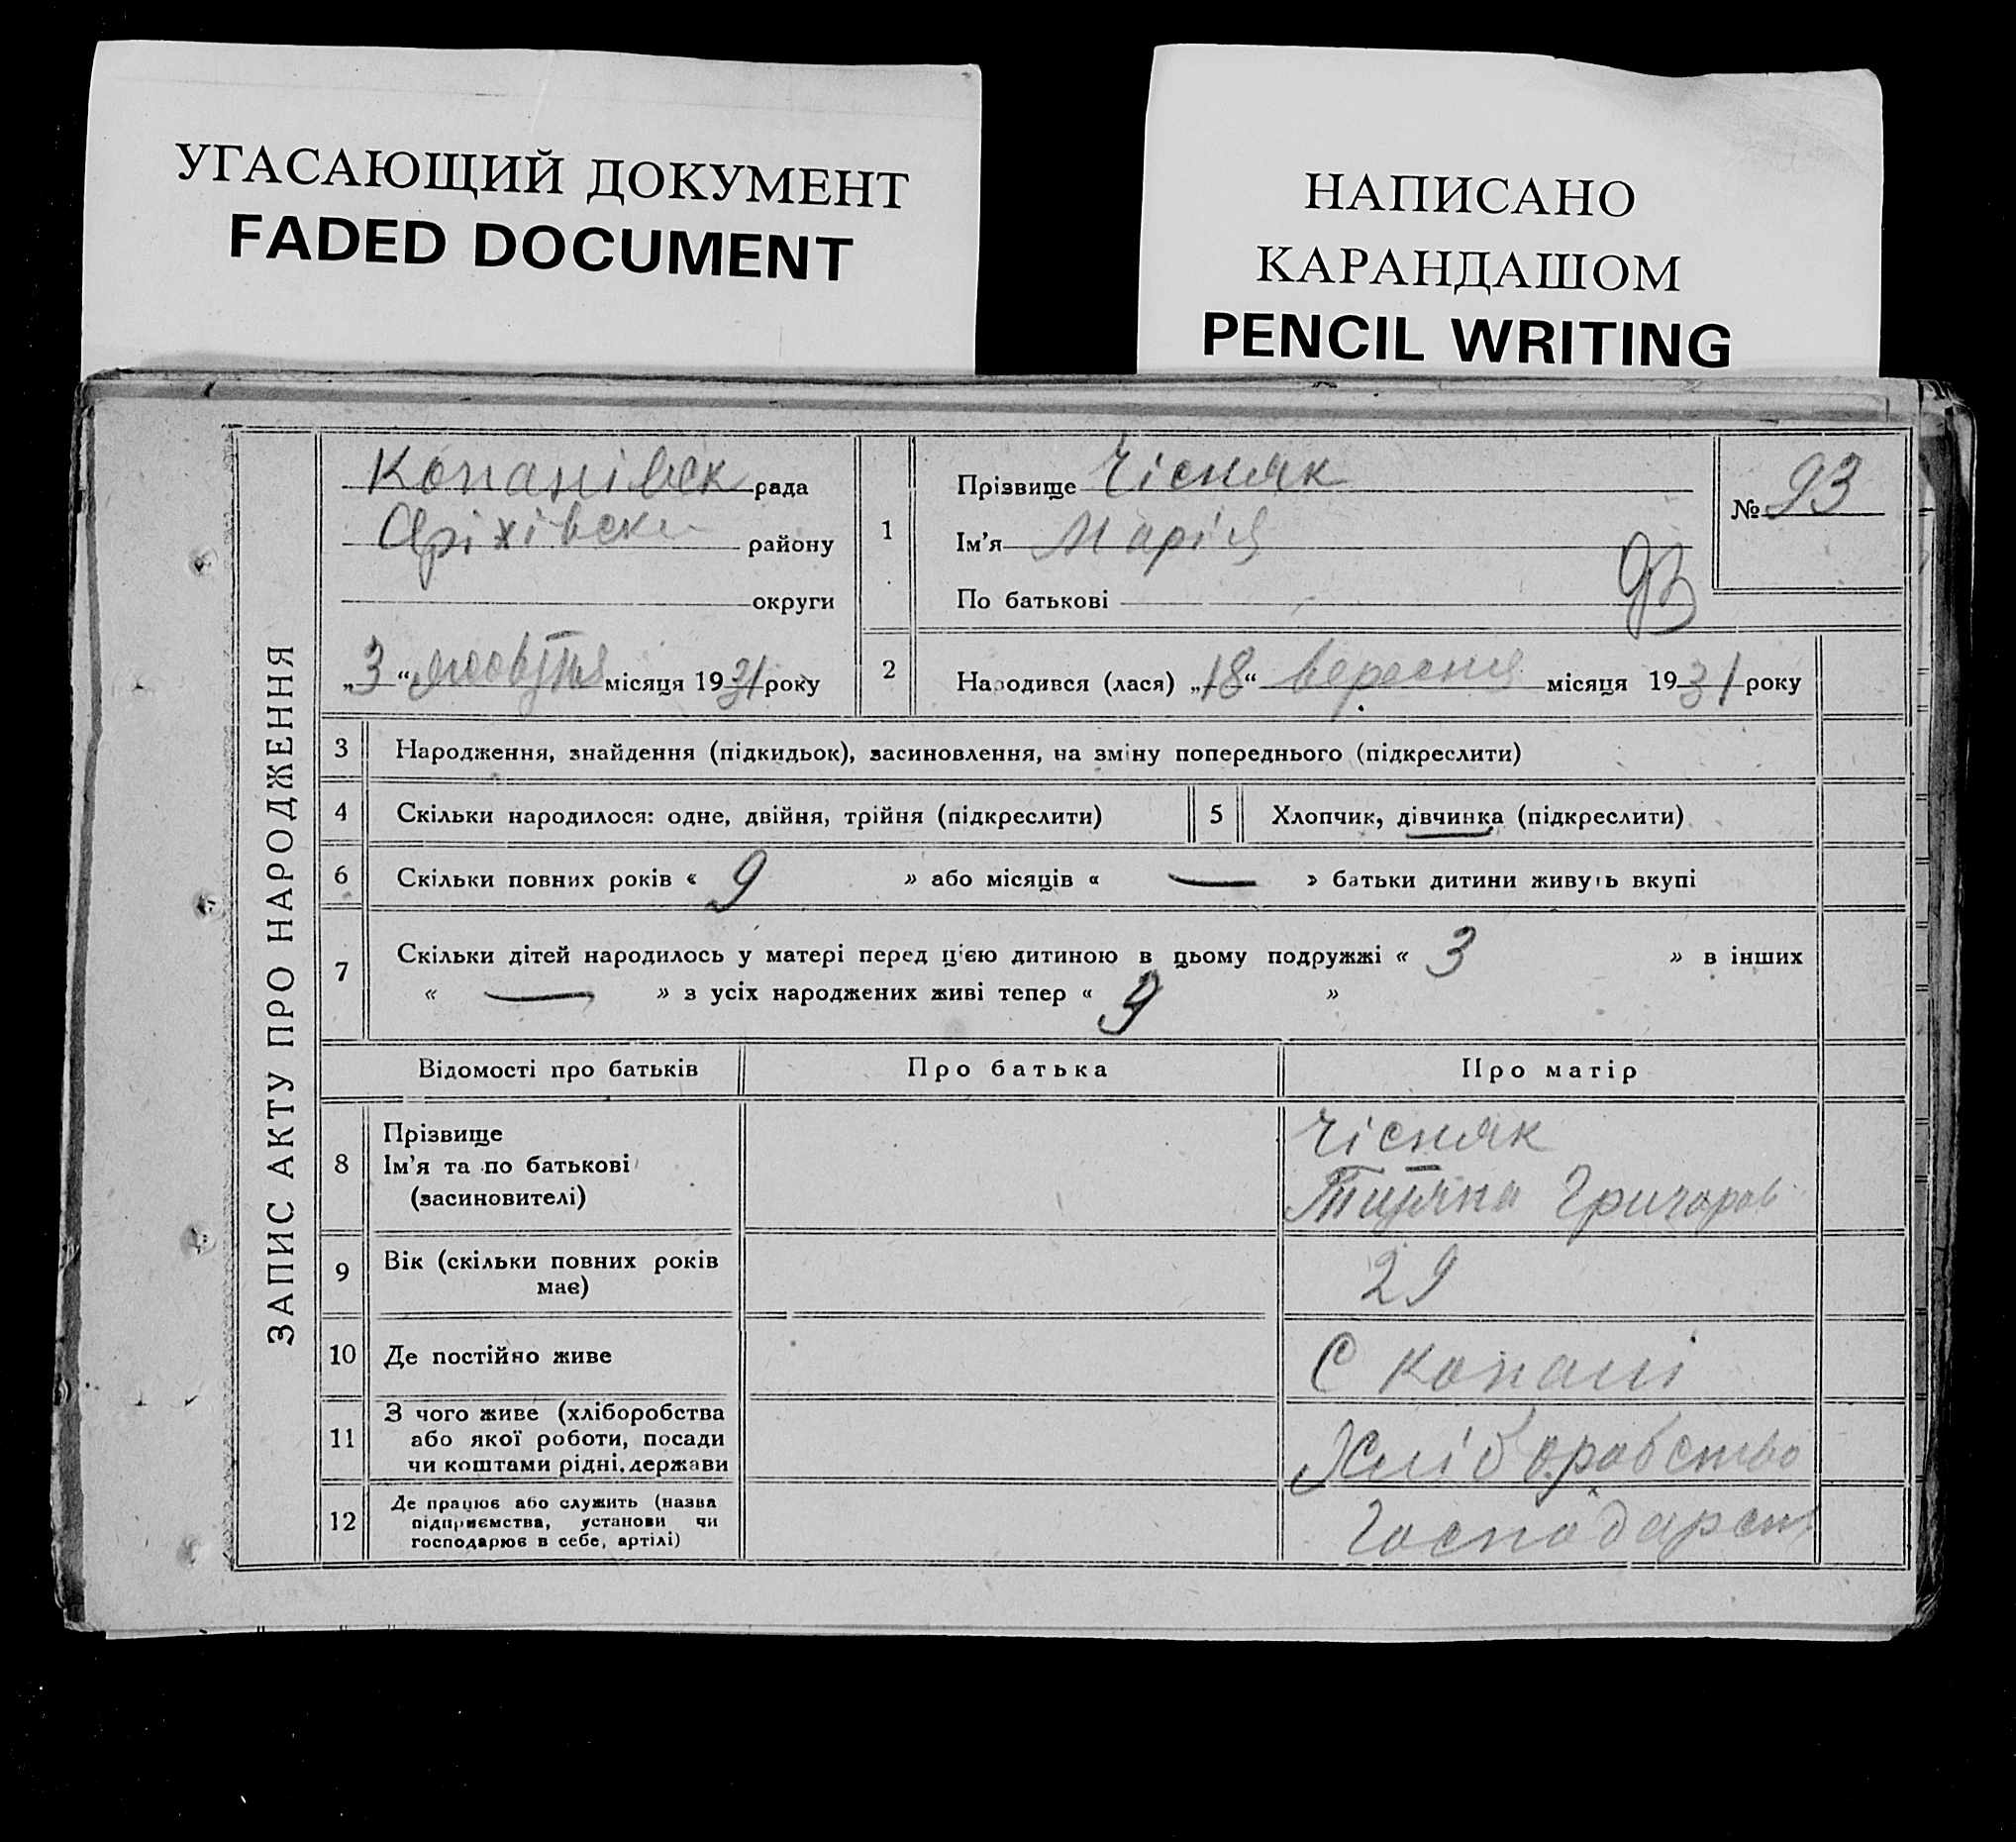 УГАСАЮЩИЙ ДОКУМЕНТ
FADED DOCUMENT
НАПИСАНО
КАРАНДАШОМ
PENCIL WRITING
ЗАПИС АКТУ ПРО НАРОДЖЕННЯ
Копанівск рада
Оріхівськ району
округи
„3“ жовтня місяця 1931 року
1
Прізвище Чісняк
Ім'я Марія
По батькові
№ 93
93
2 Народився (лася) „18“ вересня місяця 1931 року
3 Народження, знайдення (підкидьок), засиновлення, на зміну попереднього (підкреслити)
4 Скільки народилося: одне, двійня, трійня (підкреслити)
5 Хлопчик, дівчинка (підкреслити)
6 Скільки повних років « 9 » або місяців « — » батьки дитини живуть вкупі
7 Скільки дітей народилось у матері перед цією дитиною в цьому подружжі « 3 » в інших
« — » з усіх народжених живі тепер « »
Відомості про батьків
Про батька
Про матір
8 Прізвище
Ім'я та по батькові
(засиновителі)
Чісняк
Григоров
9 Вік (скільки повних років
має)
29
10 Де постійно живе
С Копані
11 З чого живе (хліборобства
або якої роботи, посади
чи коштами рідні, держави
Хліборобство
12 Де працює або служить (назва
підприємства, установи чи
господарює в себе, артілі)
Господарст